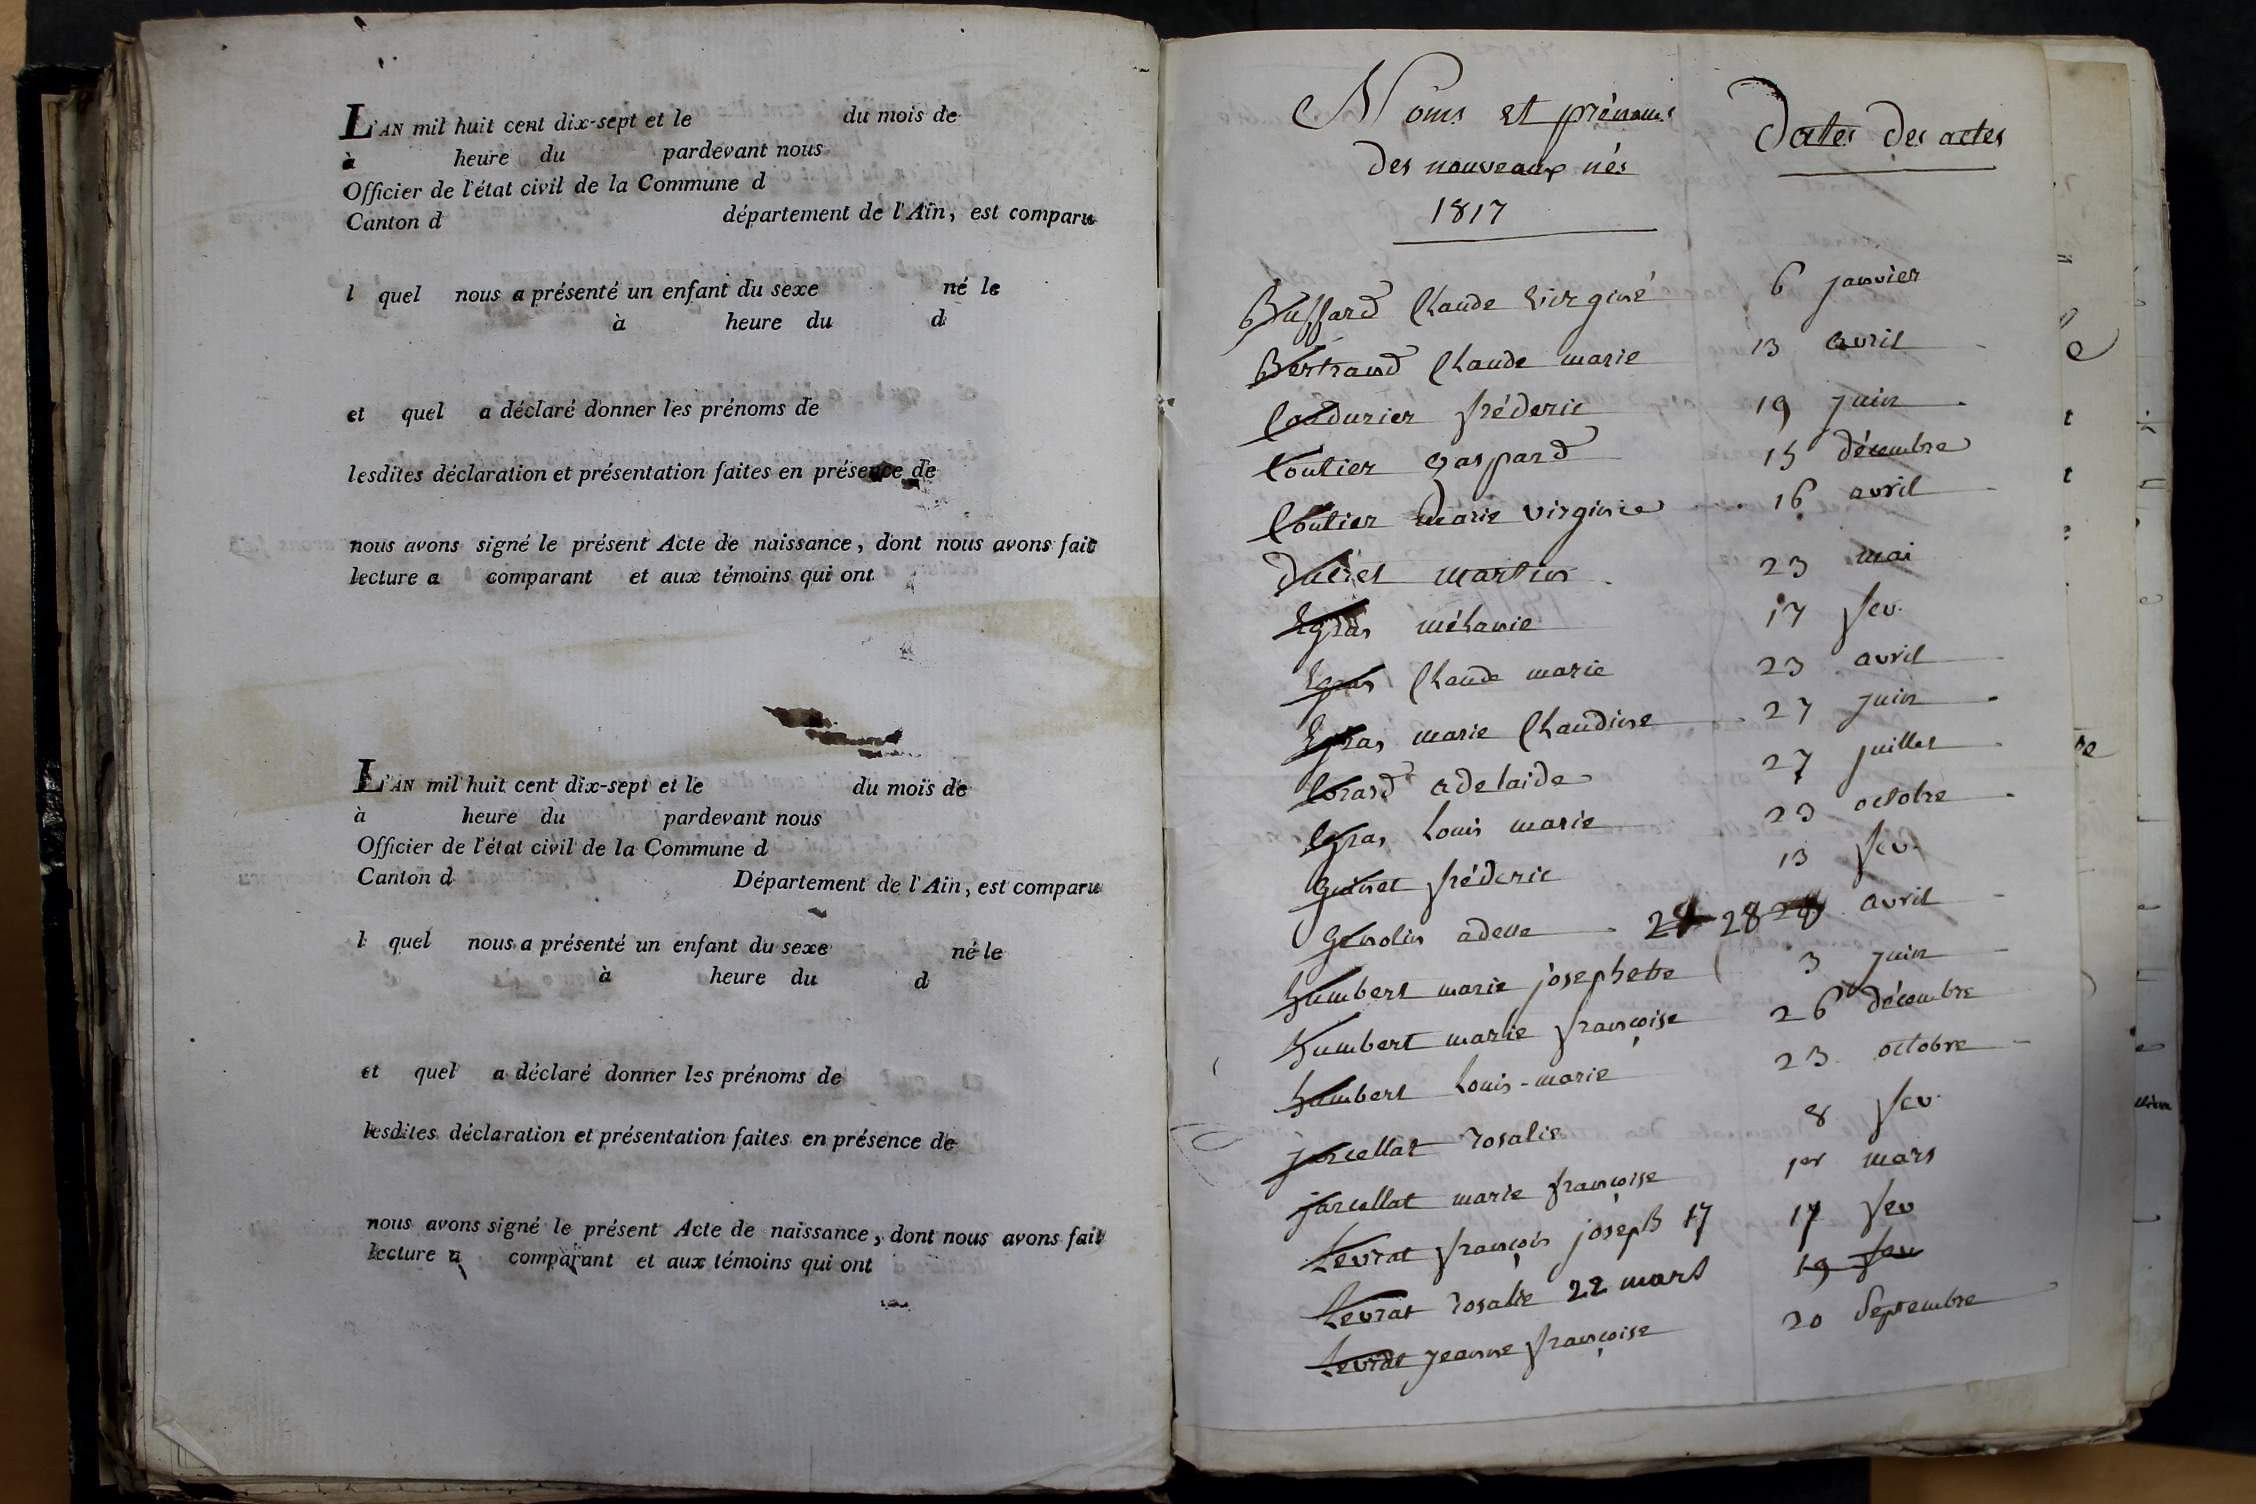 L'AN mil huit cent dix-sept et le du mois de
à heure du pardevant nous
Officier de l'état civil de la Commune d
Canton d département de l'Ain, est comparu
l quel nous a présenté un enfant du sexe né le
à heure du d
et quel a déclaré donner les prénoms de
lesdites déclaration et présentation faites en présence de
nous avons signé le présent Acte de naissance, dont nous avons fait
lecture a comparant et aux témoins qui ont
L'AN mil huit cent dix-sept et le du mois de
à heure du pardevant nous
Officier de l'état civil de la Commune d
Canton d Département de l'Ain, est comparu
l quel nous a présenté un enfant du sexe né le
à heure du d
et quel a déclaré donner les prénoms de
lesdites déclaration et présentation faites en présence de
nous avons signé le présent Acte de naissance, dont nous avons fait
lecture a comparant et aux témoins qui ont
Noms et prénoms Dates des actes
des nouveaux nés
1817
Buffard Claude virginé 6 janvier
Bertrand Claude marie 13 avril
Coudurier fréderic 19 juin
Coutier gaspard 15 décembre
Coutier Marie virginie 16 avril
Ducret martin 23 mai
Egras mélanie 17 fev.
Egras Claude marie 23 avril
Egras marie Claudine 27 juin
adelaide 27 juillet
Egras Louis marie 23 octobre
Guinet fréderic 13 fev.
Genolin adelle 28 28 28 avril
humbert marie josephete 3 juin
humbert marie françoise 26 décembre
humbert Louis-marie 23 octobre
jarcellat rosalie 8 fev.
jarcellat marie françoise 1er mars
Levrat françois joseph 17 17 fev
Levrat rosalie 22 mars 19 fev
Levrat jeanne françoise 20 septembre